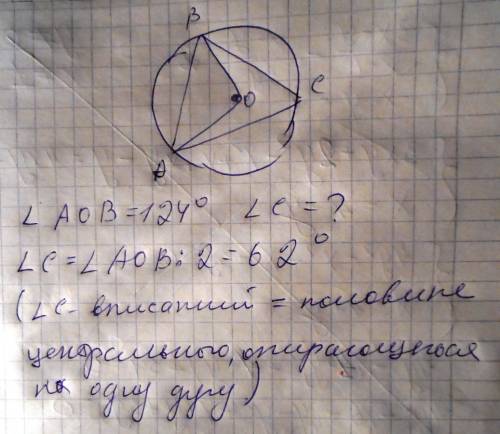 B
O
C
A
∠AOB=124° ∠C=?
∠C=∠AOB:2=62°
(∠C- вписаний = половине
центрального, опирающегося
на одну дугу)